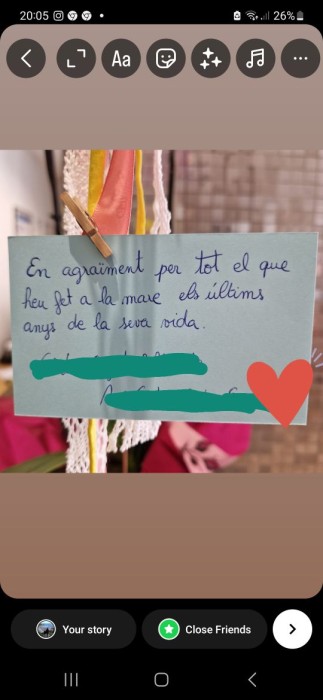 20:05
26%
Aa
En agraïment per tot el que
heu fet a la mare els últims
anys de la seva vida.
Your story
Close Friends